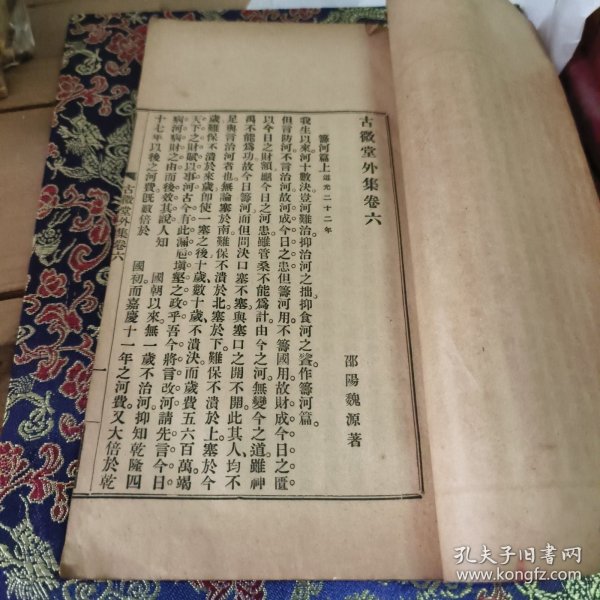 古微堂外集卷六
邵陽魏源著
籌河篇上 道光二十二年
我生以來河十數決豈河難治抑治河之拙抑食河之餮作籌河篇
但言防河不言治河故河成今日之患但籌河用不籌國用故財成今日之匱
以今日之財額籌今日之河患雖管桑不能爲計由今之河無變今之道雖神
禹不能爲功故今日籌河而但問決口塞不塞與塞口之開不開此其人均不
足與言治河者也無論塞於南難保不潰於北塞於下難保不潰於上塞於今
歲難保不潰於來歲即使一塞之後十歲數十歲不潰決而歲費五六百萬竭
天下之財賦以事河古今有此漏巵塡壑之政乎吾今將言改河請先言今日
病河病財之由而後效其說人知 國朝以來無一歲不治河抑知乾隆四
十七年以後之河費既數倍於 國初而嘉慶十一年之河費又大倍於乾
古微堂外集卷六
孔夫子旧書网
www.kongfz.com